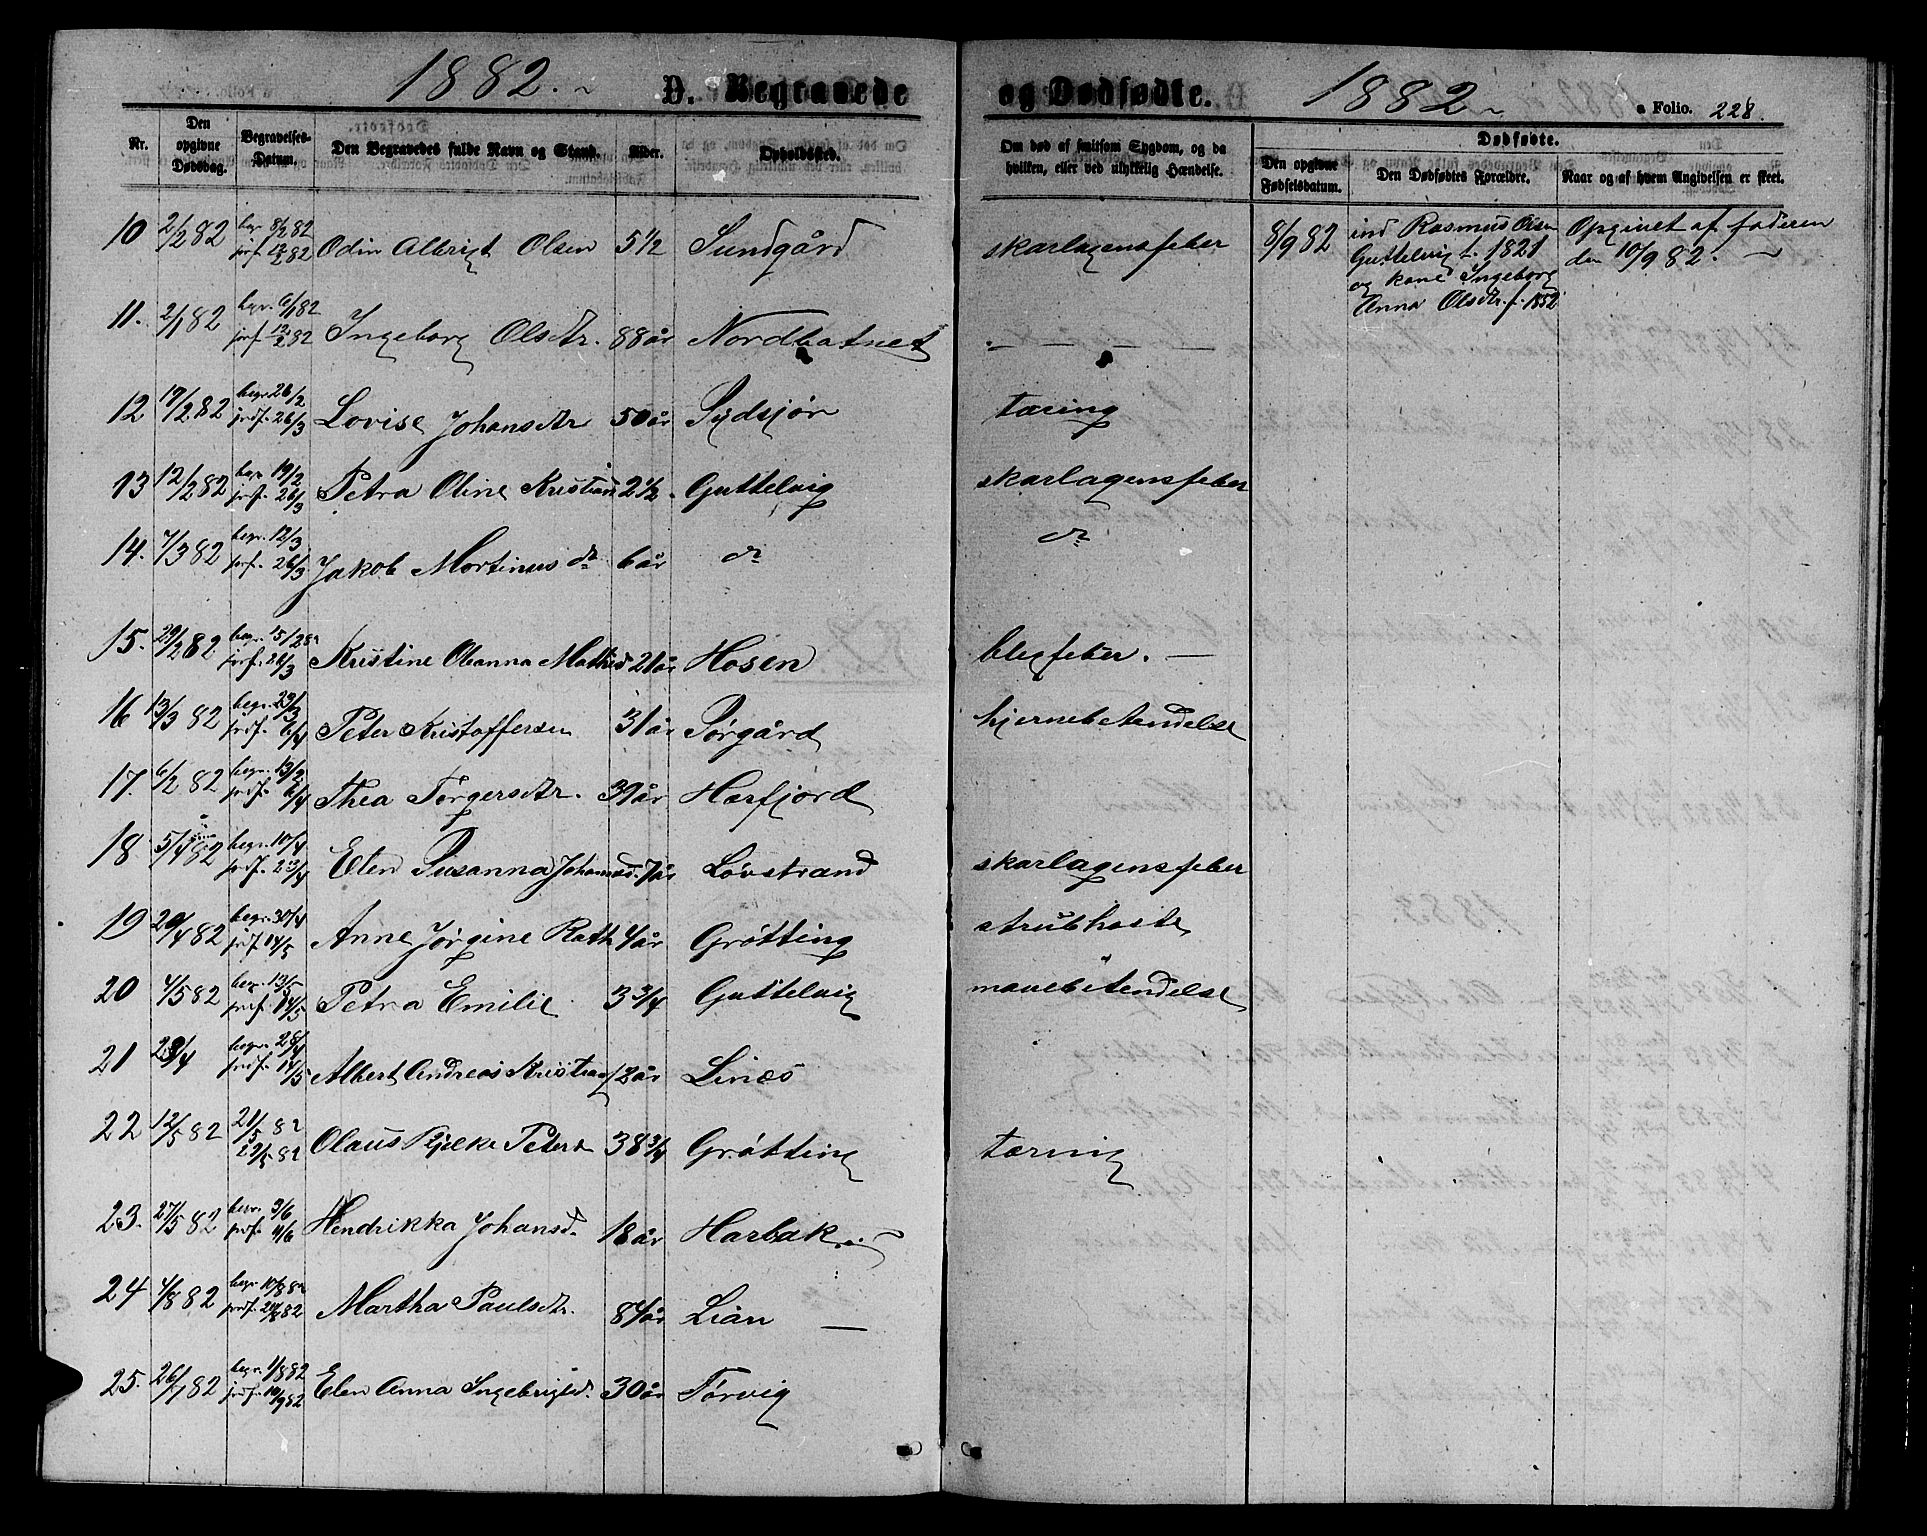 1882. D. Begravede og Dødfødte. 1882 Folio. 228.
Nr. Den opgivne Dødsdag. Begravelses-Datum. Den Begravedes fulde Navn og Stand. Alder. Opholdssted. Om død af smitsom Sygdom, og da hvilken, eller ved ulykkelig Hændelse. Dødfødte.
Den opgivne Fødselsdatum. Den Dødfødtes Forældre. Naar og af hvem Angivelsen er skeet.
10 2/2 82 begr 8/2 82 Odin Albrigt Olsen 5 1/2 Sundgård skarlagensfeber 8/9 82 ind Rasmus Olsen Opgivet af faderen
Guttelvig f. 1821 den 10/9 82.
og kone Ingeborg
Anna Olsdtr. f. 1852
11. 2/1 82 begr. 6/1 82 jorf. 12/2 82 Ingeborg Olsdtr. 88 år Nordbotnet — — — —
12 17/2 82 begr 26/2 jordf. 26/3 Lovise Johansdtr 50 år Sydsjør tæring
13 12/2 82 begr 19/2 jorf. 26/3 Petra Oline Kristian 2 1/2 Guttelvig skarlagensfeber
14. 7/3 82 begr. 12/3 jorf. 26/3 Jakob Mortinus do 6 år do do
15. 29/2 82 jorf. 26/3 Kristine Olianna Mathisd 21 år Hosen blegfeber. —
16 13/3 82 begr. 23/3 jordf. 6/4 Peter Kristoffersen 31 år Sørgård hjernebetændelse
17. 6/2 82 begr. 13/2 jordf. 6/4 Thea Torgersdtr. 39 år Harfjord
18 5/4 82 begr. 10/4 jordf. 23/4 Elen Susanna Johannesd. 7 år Løvstrand skarlagensfeber
19 20/4 82 begr. 30/4 jorf 14/5 Anne Jørgine Rath 4 år Grøtting strubhoste
20 4/5 82 begr. 13/5 jordf. 14/5 Petra Emilie 3 3/4 Guttelvig mavebetændelse
21 23/4 begr. 28/4 jordf. 14/5 Albert Andreas Kristian 12 år Linæs
22 12/5 82 21/5 82 Olaus Petersn 38 3/4 Grøtting tæring
23. 27/5 82 begr. 3/6 jordf. 4/6 Hendrikka Johansd. 18 år Harbak
24 4/8 82 begr 10/8 82 jordf. 20/8 82 Martha Paulsdtr. 84 år Lian —
25. 26/7 82 begr. 1/8 82 jordf. 10/9 82 Elen Anna Ingebrigtsd. 30 år Tørvig